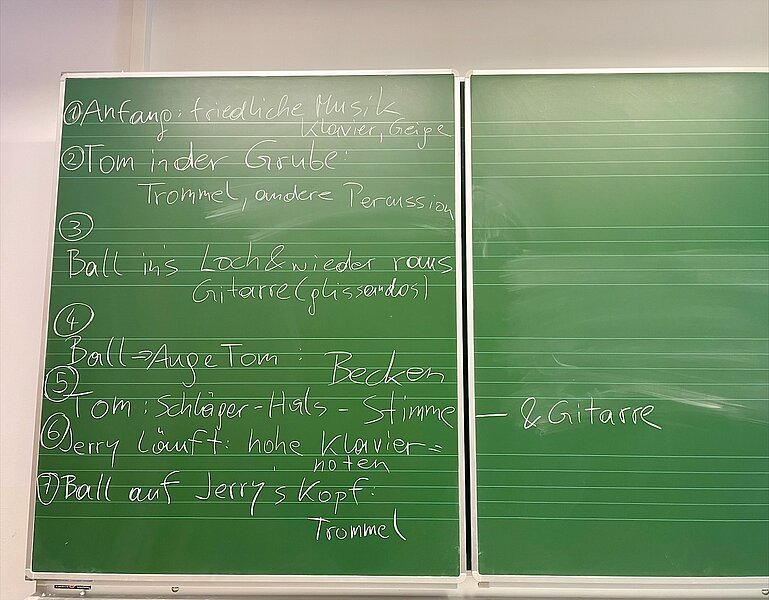 ① Anfang: friedliche Musik
Klavier, Geige
② Tom in der Grube:
Trommel, andere Percussion
③
Ball in's Loch & wieder raus
Gitarre (glissandos)
④
Ball ⇒ Auge Tom : Becken
⑤
Tom : Schläger-Hals - Stimme — & Gitarre
⑥ Jerry läuft: hohe Klavier=
noten
⑦ Ball auf Jerry's Kopf:
Trommel